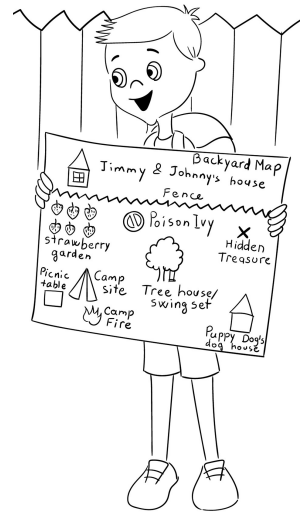 Backyard Map
Jimmy & Johnny's house
Fence
Poison Ivy
strawberry
garden
Hidden
Treasure
Picnic
table
Camp
site
Tree house/
swing set
Camp
Fire
Puppy Dog's
dog house